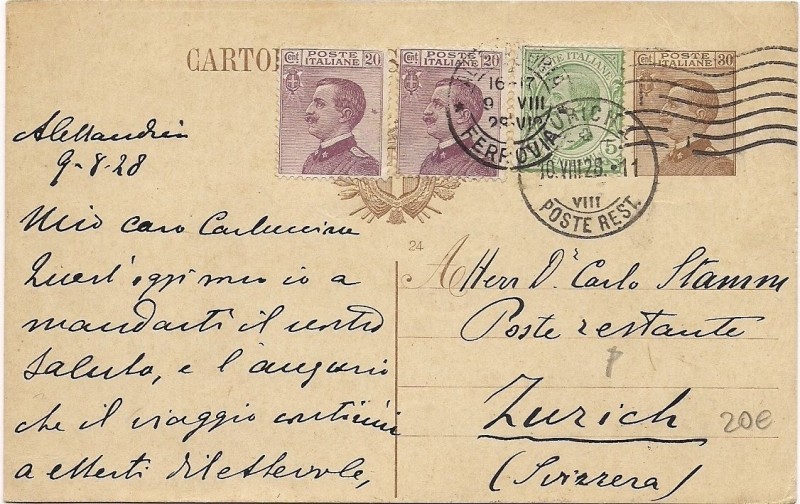 CARTO
Cent 20
POSTE ITALIANE
Cent 20
POSTE ITALIANE
POSTE ITALIANE
5
Cent 30
POSTE ITALIANE
16-17
9 VIII
28 VI
FERROVIA
ZURICH
10.VIII.28. 11
VIII
POSTE REST.
Alessandria
9-8-28
Mio caro
oggi io a
mandarti il nostro
saluto, e l'augurio
che il viaggio continui
a esserti dilettevole,
24
A Herr Dr Carlo Stamm
Poste restante
Zurich
(Svizzera)
20€